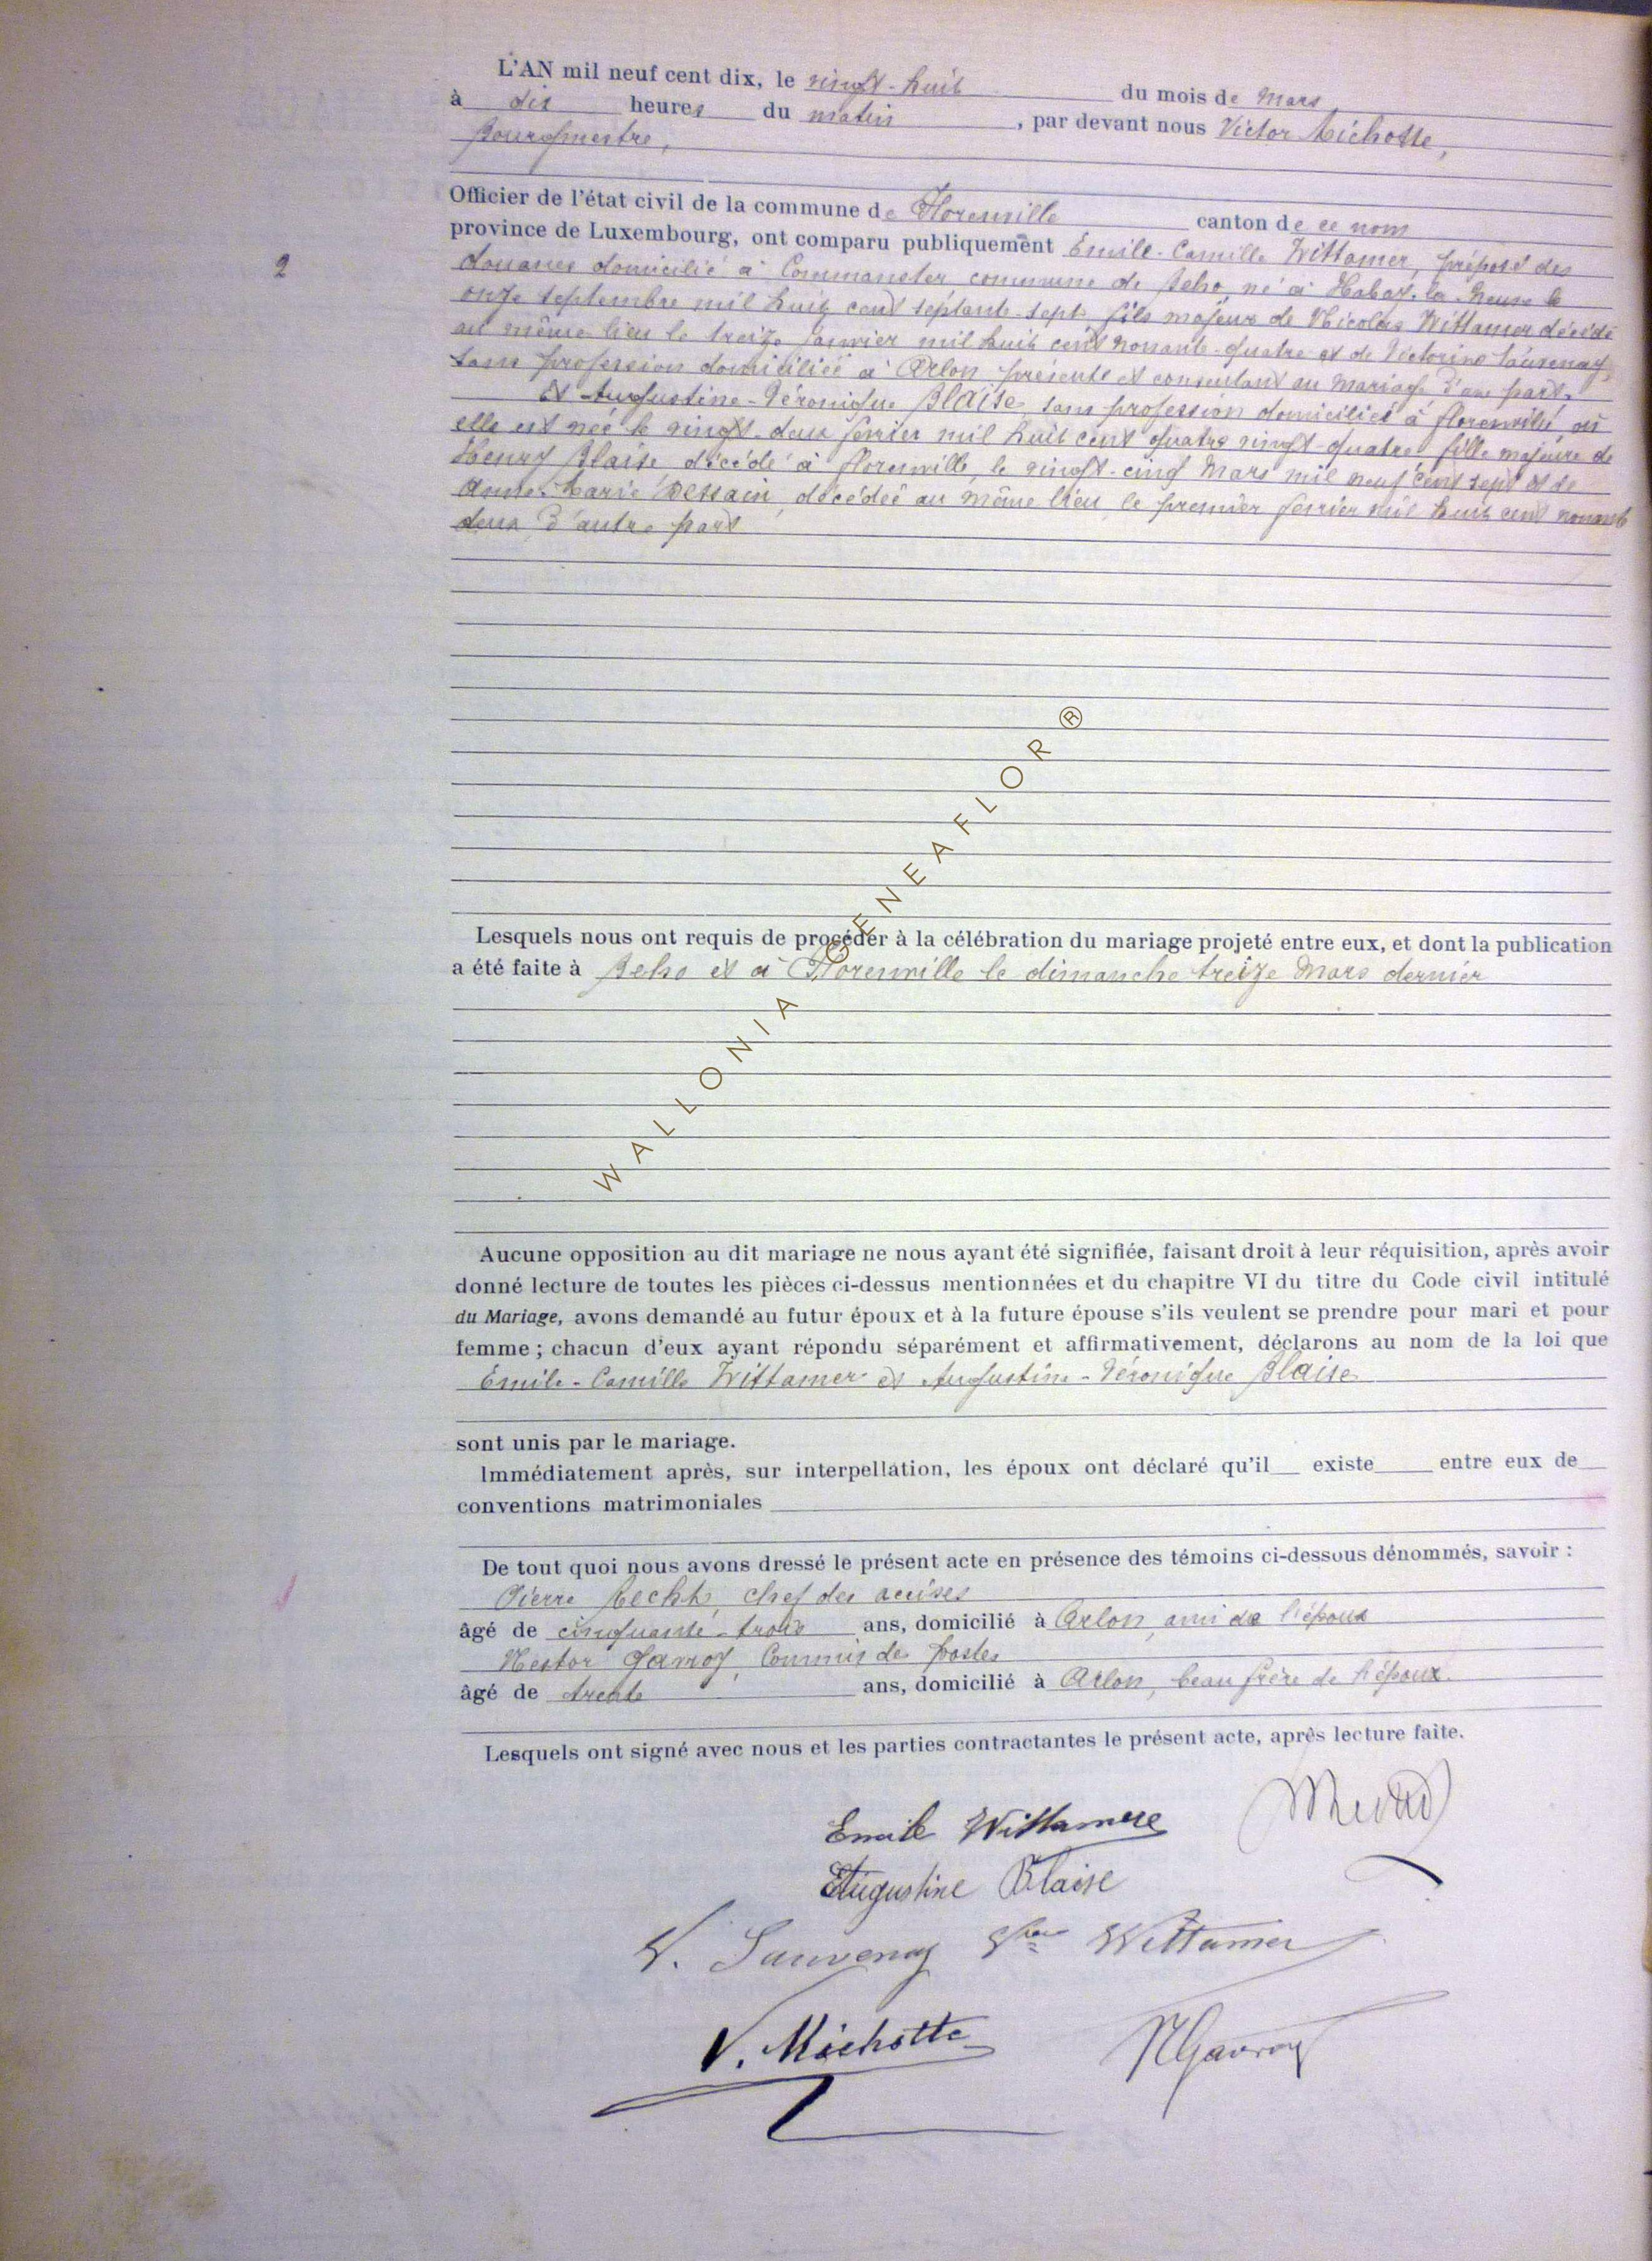 L'AN mil neuf cent dix, le vingt-huit du mois de Mars
à dix heures du matin, par devant nous Victor Michotte,
Bourgmestre,
Officier de l'état civil de la commune de Florenville canton de ce nom
province de Luxembourg, ont comparu publiquement Emile-Camille Wittamer, préposé des
2
douanes domicilié à Commanster commune de Beho né à Habay-la-Neuve le
onze septembre mil huit cent septante-sept fils majeur de Nicolas Wittamer décédé
au même lieu le treize janvier mil huit cent nonante-quatre et de Victorine Sauvenay,
sans profession domiciliée à Arlon présente et consentant au mariage d'une part.
Et Augustine-Véronique Blaise, sans profession domiciliée à florenville où
elle est née le vingt-deux février mil huit cent quatre vingt-quatre fille majeure de
Henry Blaise, décédé à florenville, le vingt-cinq Mars mil neuf cent sept et de
Anne-Marie Dessain, décédée au même lieu le premier février mil huit cent nonante
deux d'autre part
Lesquels nous ont requis de procéder à la célébration du mariage projeté entre eux, et dont la publication
a été faite à Beho et à Florenville le dimanche treize Mars dernier
WALLONIA GENEAFLOR ®
Aucune opposition au dit mariage ne nous ayant été signifiée, faisant droit à leur réquisition, après avoir
donné lecture de toutes les pièces ci-dessus mentionnées et du chapitre VI du titre du Code civil intitulé
du Mariage, avons demandé au futur époux et à la future épouse s'ils veulent se prendre pour mari et pour
femme ; chacun d'eux ayant répondu séparément et affirmativement, déclarons au nom de la loi que
Emile-Camille Wittamer et Augustine-Véronique Blaise
sont unis par le mariage.
Immédiatement après, sur interpellation, les époux ont déclaré qu'il existe entre eux de
conventions matrimoniales
De tout quoi nous avons dressé le présent acte en présence des témoins ci-dessous dénommés, savoir :
Pierre chef des accises
âgé de cinquante-trois ans, domicilié à Arlon, ami de l'époux
Nestor Gavroy, Commis des postes
âgé de trente ans, domicilié à Arlon, beau frère de l'époux.
Lesquels ont signé avec nous et les parties contractantes le présent acte, après lecture faite.
Emile Wittamer
Augustine Blaise
V. Sauvenay Vve Wittamer
V. Michotte NGavroy